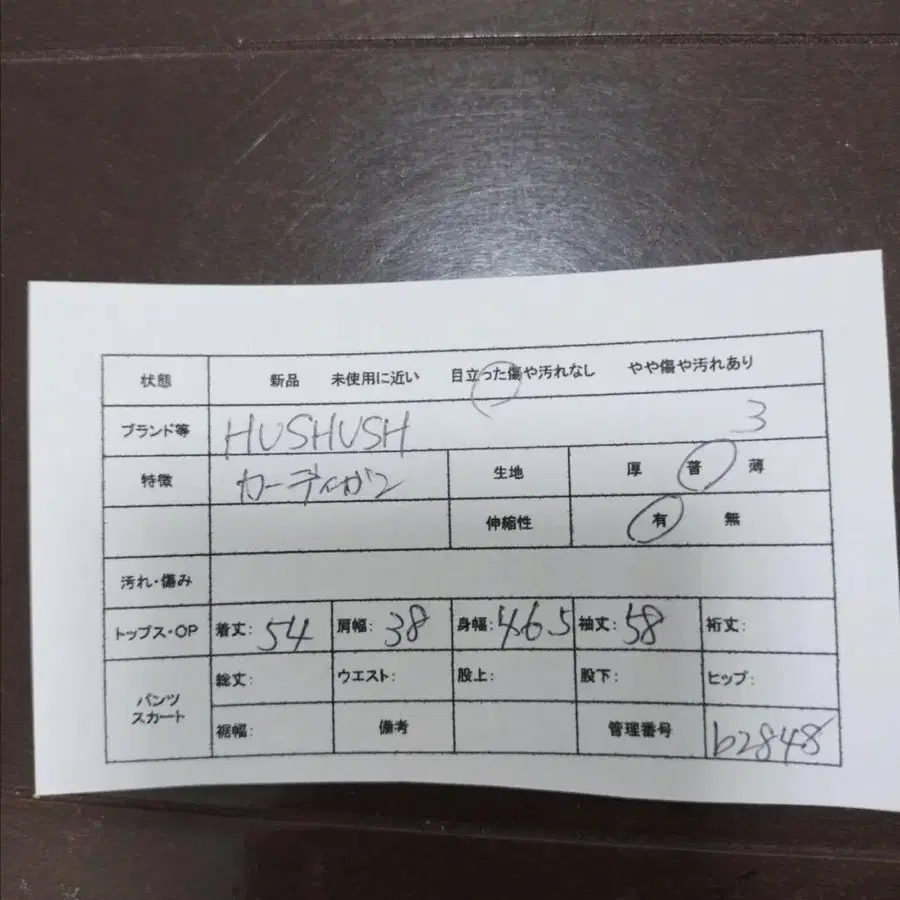 状態 新品 未使用に近い 目立った傷や汚れなし やや傷や汚れあり
ブランド等 HUSHUSH 3
特徴 カーディガン 生地 厚 普 薄
伸縮性 有 無
汚れ・傷み
トップス・OP 着丈: 54 肩幅: 38 身幅: 46.5 袖丈: 58 裄丈:
パンツ スカート 総丈: ウエスト: 股上: 股下: ヒップ:
裾幅: 備考 管理番号 b2848